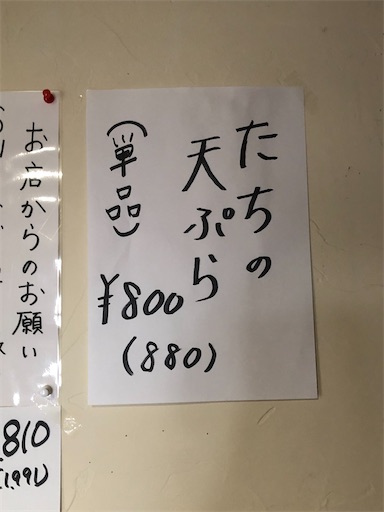 たちの
天ぷら
(単品)
¥800
(880)
お店からのお願い
810
(1,991)